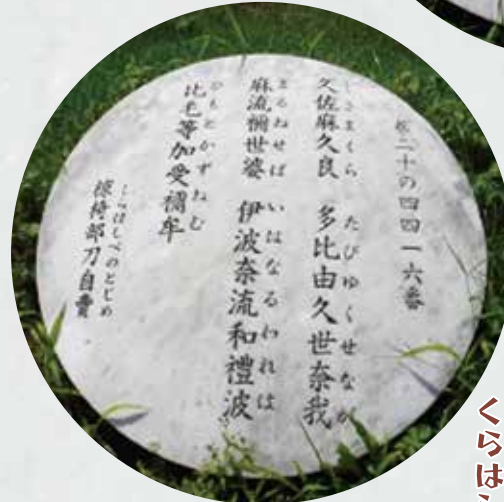 巻二十の四四一六番
くさまくら たびゆくせなが
久佐麻久良 多比由久世奈我
まるねせば いはなるわれは
麻流禰世婆 伊波奈流和禮波
ひもとかずねむ
比毛等加受禰牟
くらはしべのとじめ
椋椅部刀自賣
くらは